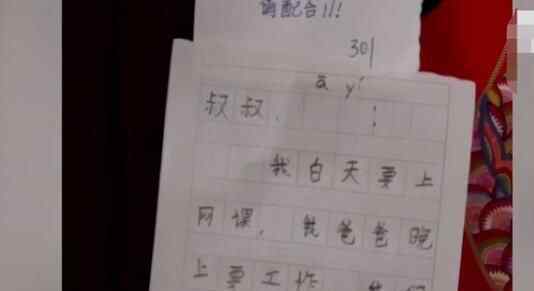 请配合!!!
301
ā yí
叔叔、 :
我白天要上
网课,我爸爸晚
上要工作